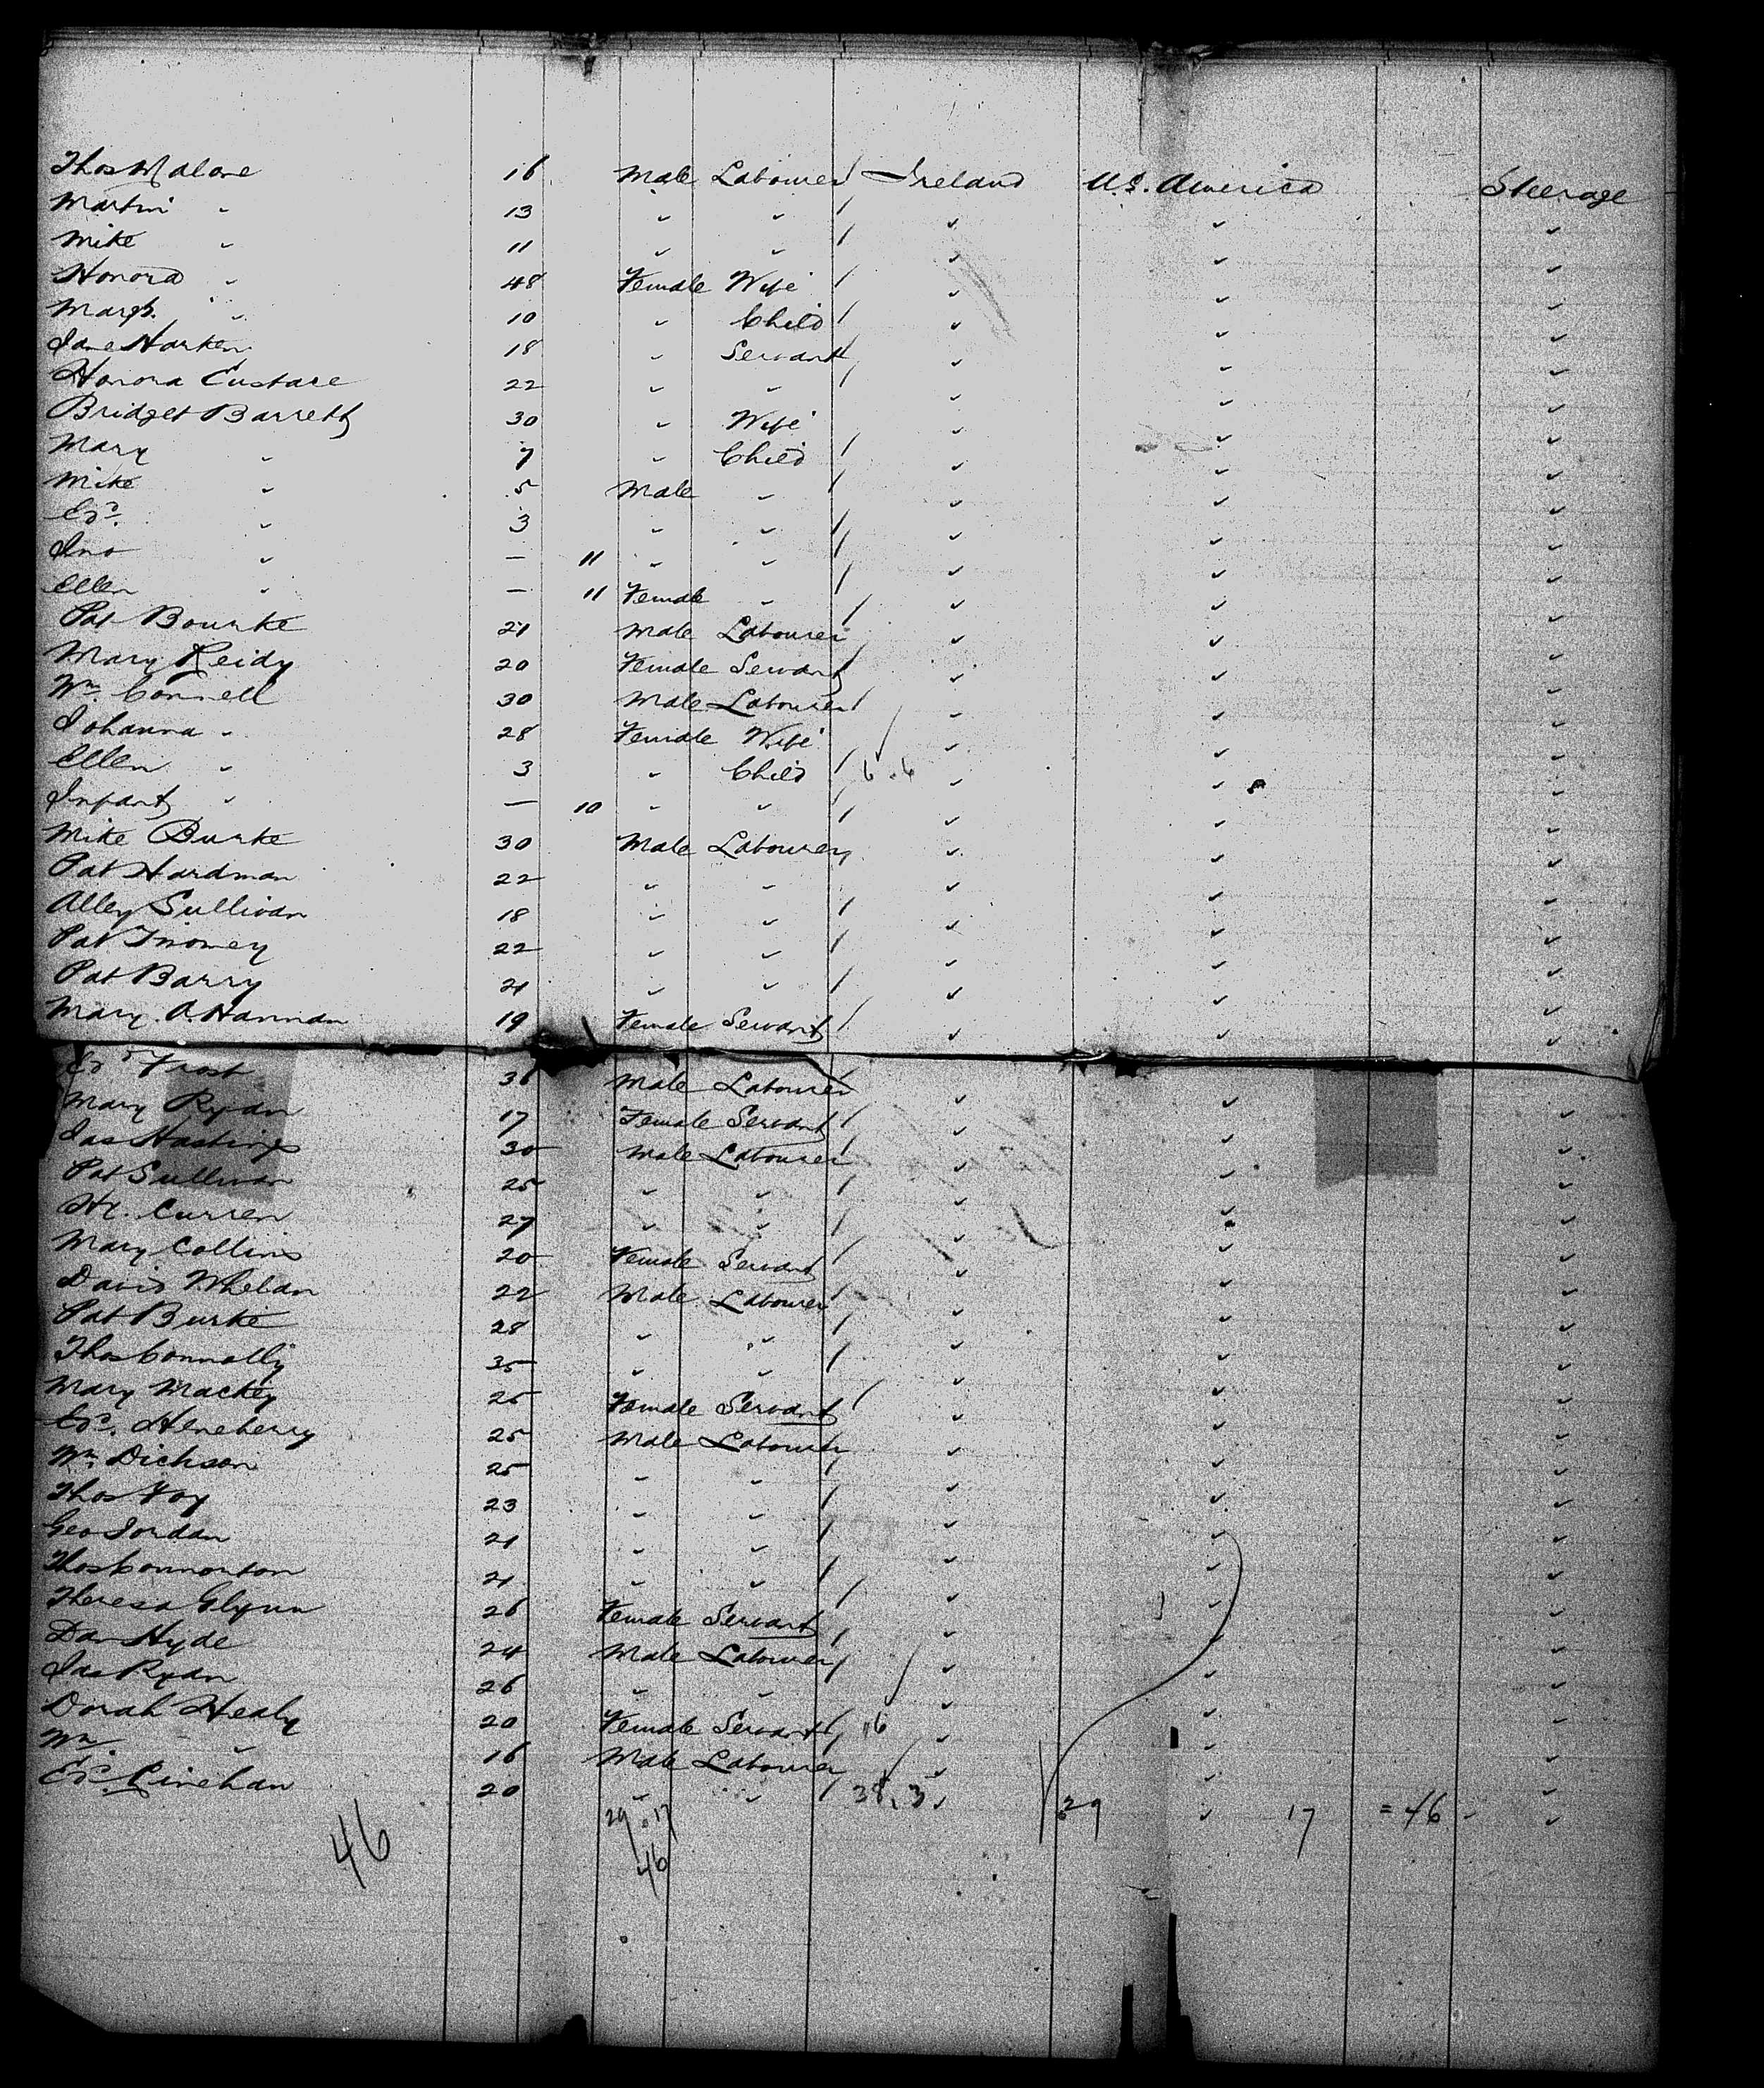 Thos Malone 16 Male Labourer Ireland U.S. America Steerage
Martin " 13 " " " " "
Mike " 11 " " " " "
Honora " 48 Female Wife " " "
Margt. " 10 " Child " " "
Jane Harken 18 " Servant " " "
Honora Eustace 22 " " " " "
Bridget Barrett 30 " Wife " " "
Mary " 7 " Child " " "
Mike " 5 Male " " " "
Edd. " 3 " " " " "
Jno " — 11 " " " " "
Ellen " — 11 Female " " " "
Pat Bourke 21 Male Labourer " " "
Mary Reidy 20 Female Servant " " "
Wm. Connell 30 Male Labourer " " "
Johanna " 28 Female Wife " " "
Ellen " 3 " Child 6.6 " " "
Infant " — 10 " " " " "
Mike Burke 30 Male Labourer " " "
Pat Hardman 22 " " " " "
Alley Sullivan 18 " " " " "
Pat Twomey 22 " " " " "
Pat Barry 21 " " " " "
Mary A. Hannan 19 Female Servant " " "
Edd Frost 36 Male Labourer " " "
Mary Ryan 17 Female Servant " " "
Jas Hastings 30 Male Labourer " " "
Pat Sullivan 25 " " " " "
Hy. Curren 27 " " " " "
Mary Collins 20 Female Servant " " "
David Whelan 22 Male Labourer " " "
Pat Burke 28 " " " " "
Thos Connolly 35 " " " " "
Mary Mackey 25 Female Servant " " "
Edd. Heneberry 25 Male Labourer " " "
Wm. Dickson 25 " " " " "
Thos Foy 23 " " " " "
Geo Jordan 21 " " " " "
Thos Connorton 21 " " " " "
Theresa Glynn 26 Female Servant " " "
Dan Hyde 24 Male Labourer " " "
Jas Ryan 26 " " " " "
Dorah Healy 20 Female Servant 6 " " "
Wm " 16 Male Labourer " " "
Edd. Linehan 20 " " 38.3 " " "
29.17 29 17 = 46
46 46